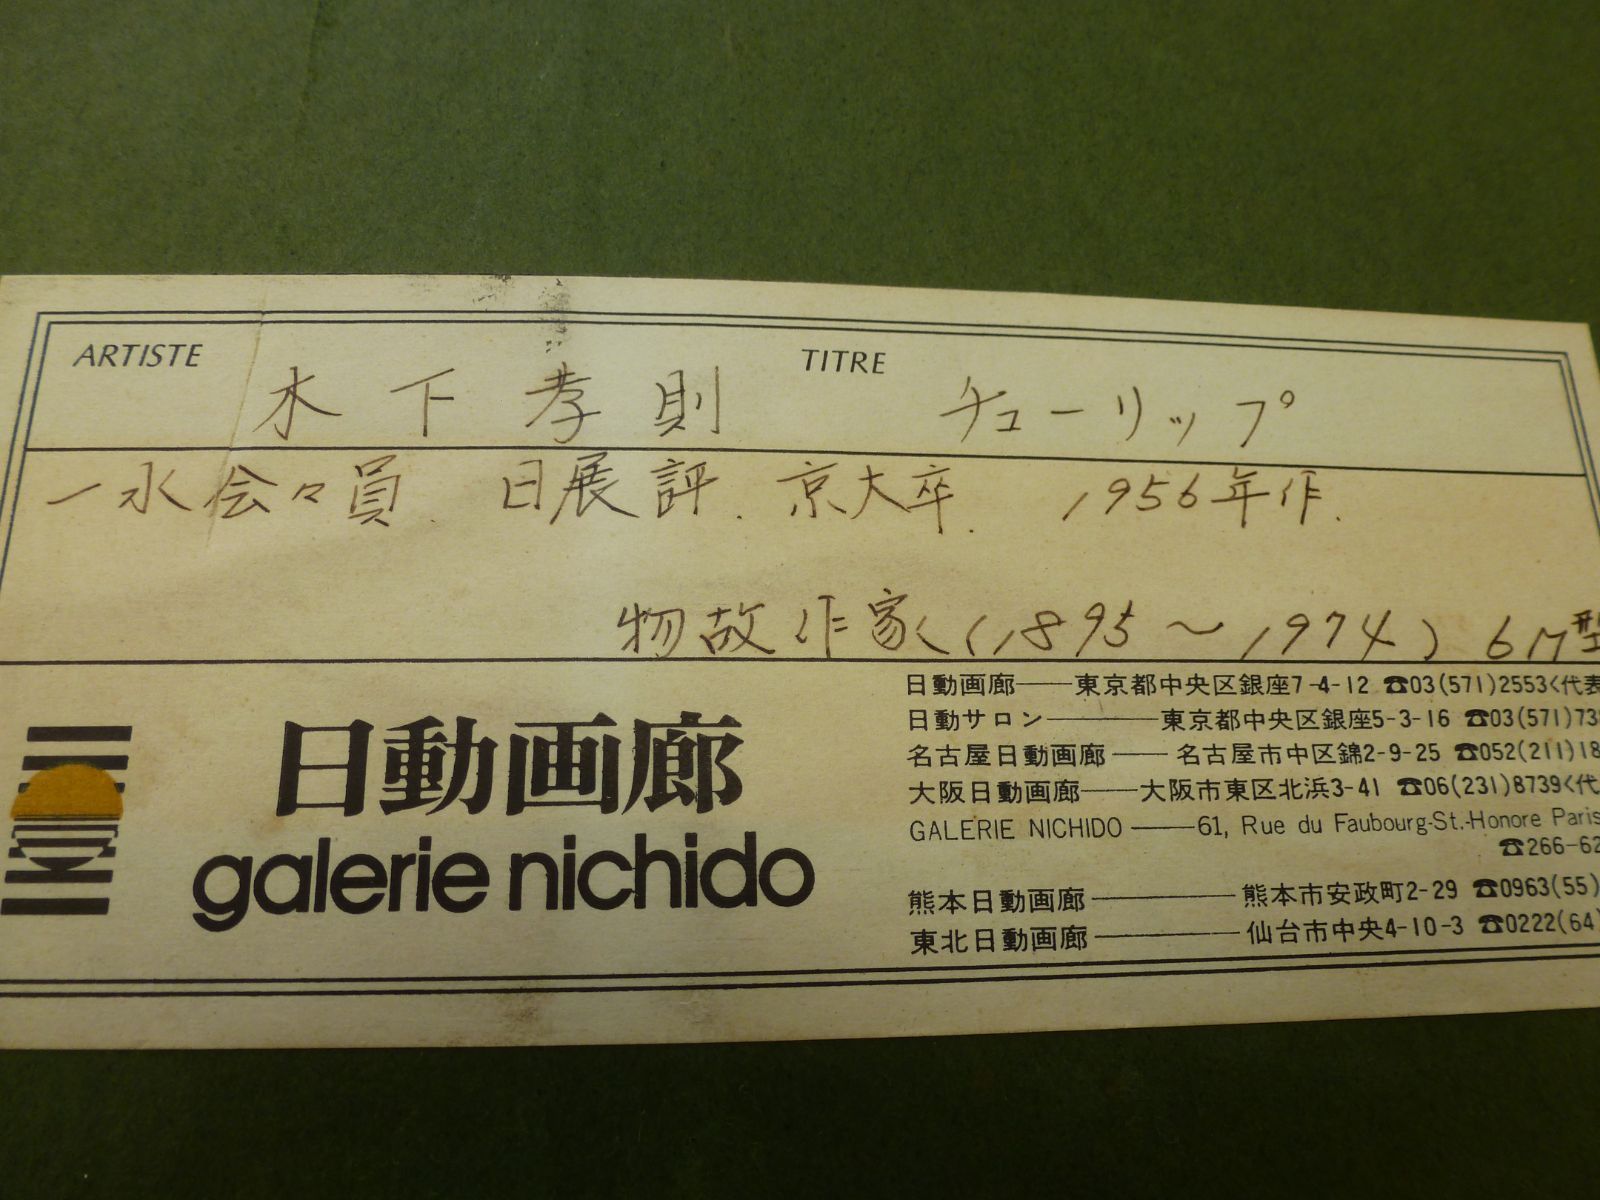 ARTISTE
TITRE
木下孝則 チューリップ
一水会々員. 日展評. 京大卒. 1956年作.
物故作家(1895~1974) 6M型
日動画廊
galerie nichido
日動画廊――東京都中央区銀座7-4-12 ☎03(571)2553<代表
日動サロン――東京都中央区銀座5-3-16 ☎03(571)73
名古屋日動画廊――名古屋市中区錦2-9-25 ☎052(211)18
大阪日動画廊――大阪市東区北浜3-41 ☎06(231)8739<代
GALERIE NICHIDO――61, Rue du Faubourg-St.-Honore Paris
☎266-62
熊本日動画廊――熊本市安政町2-29 ☎0963(55)
東北日動画廊――仙台市中央4-10-3 ☎0222(64)